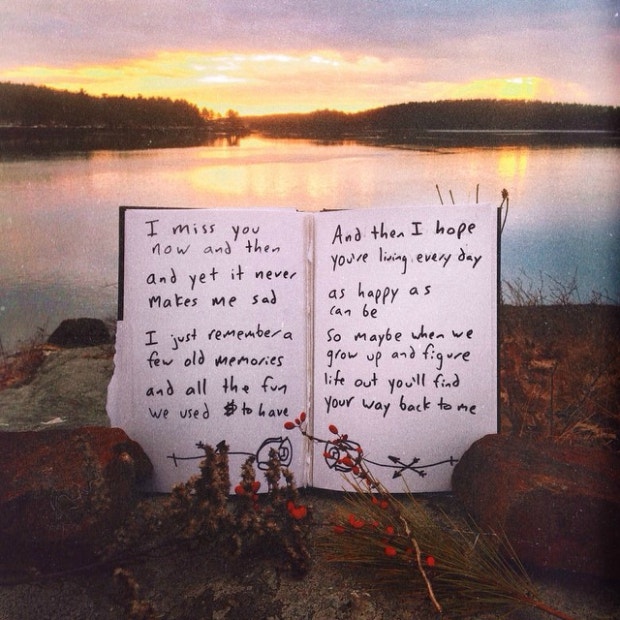 I miss you
now and then
and yet it never
makes me sad
I just remember a
few old memories
and all the fun
we used to have
And then I hope
you're living every day
as happy as
can be
So maybe when we
grow up and figure
life out you'll find
your way back to me